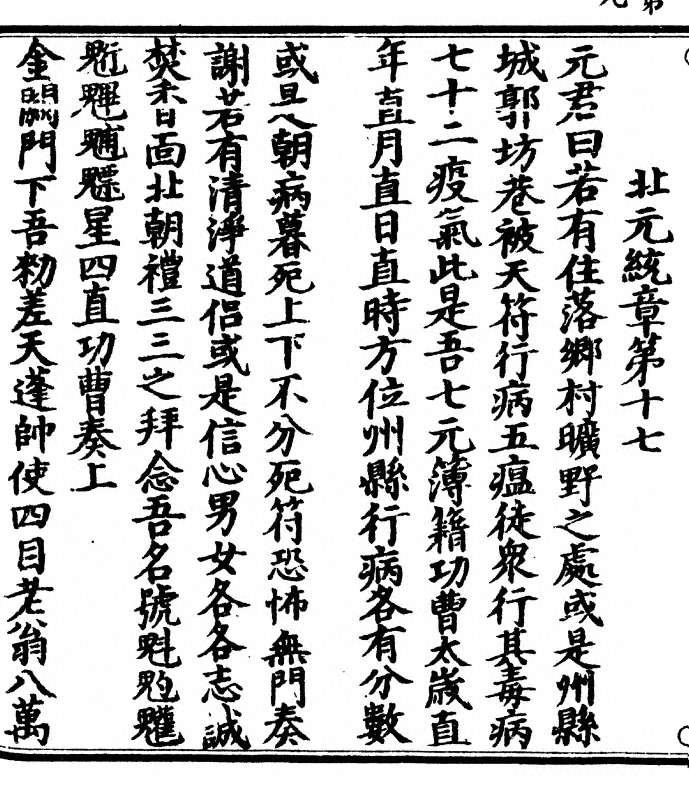 北元統章第十七
元君曰若有住落鄉村曠野之處或是州縣
城郭坊巷被天符行病五瘟徒衆行其毒病
七十二疫氣此是吾七元簿籍功曹太歲直
年直月直日直時方位州縣行病各有分數
或旦朝病暮死上下不分死符恐怖無門奏
謝若有清淨道侶或是信心男女各各志誠
焚香面北朝禮三三之拜念吾名號魁𩲃䰢
魓䰡魒星四直功曹奏上
金闕門下吾勑差天蓬帥使四目老翁八萬